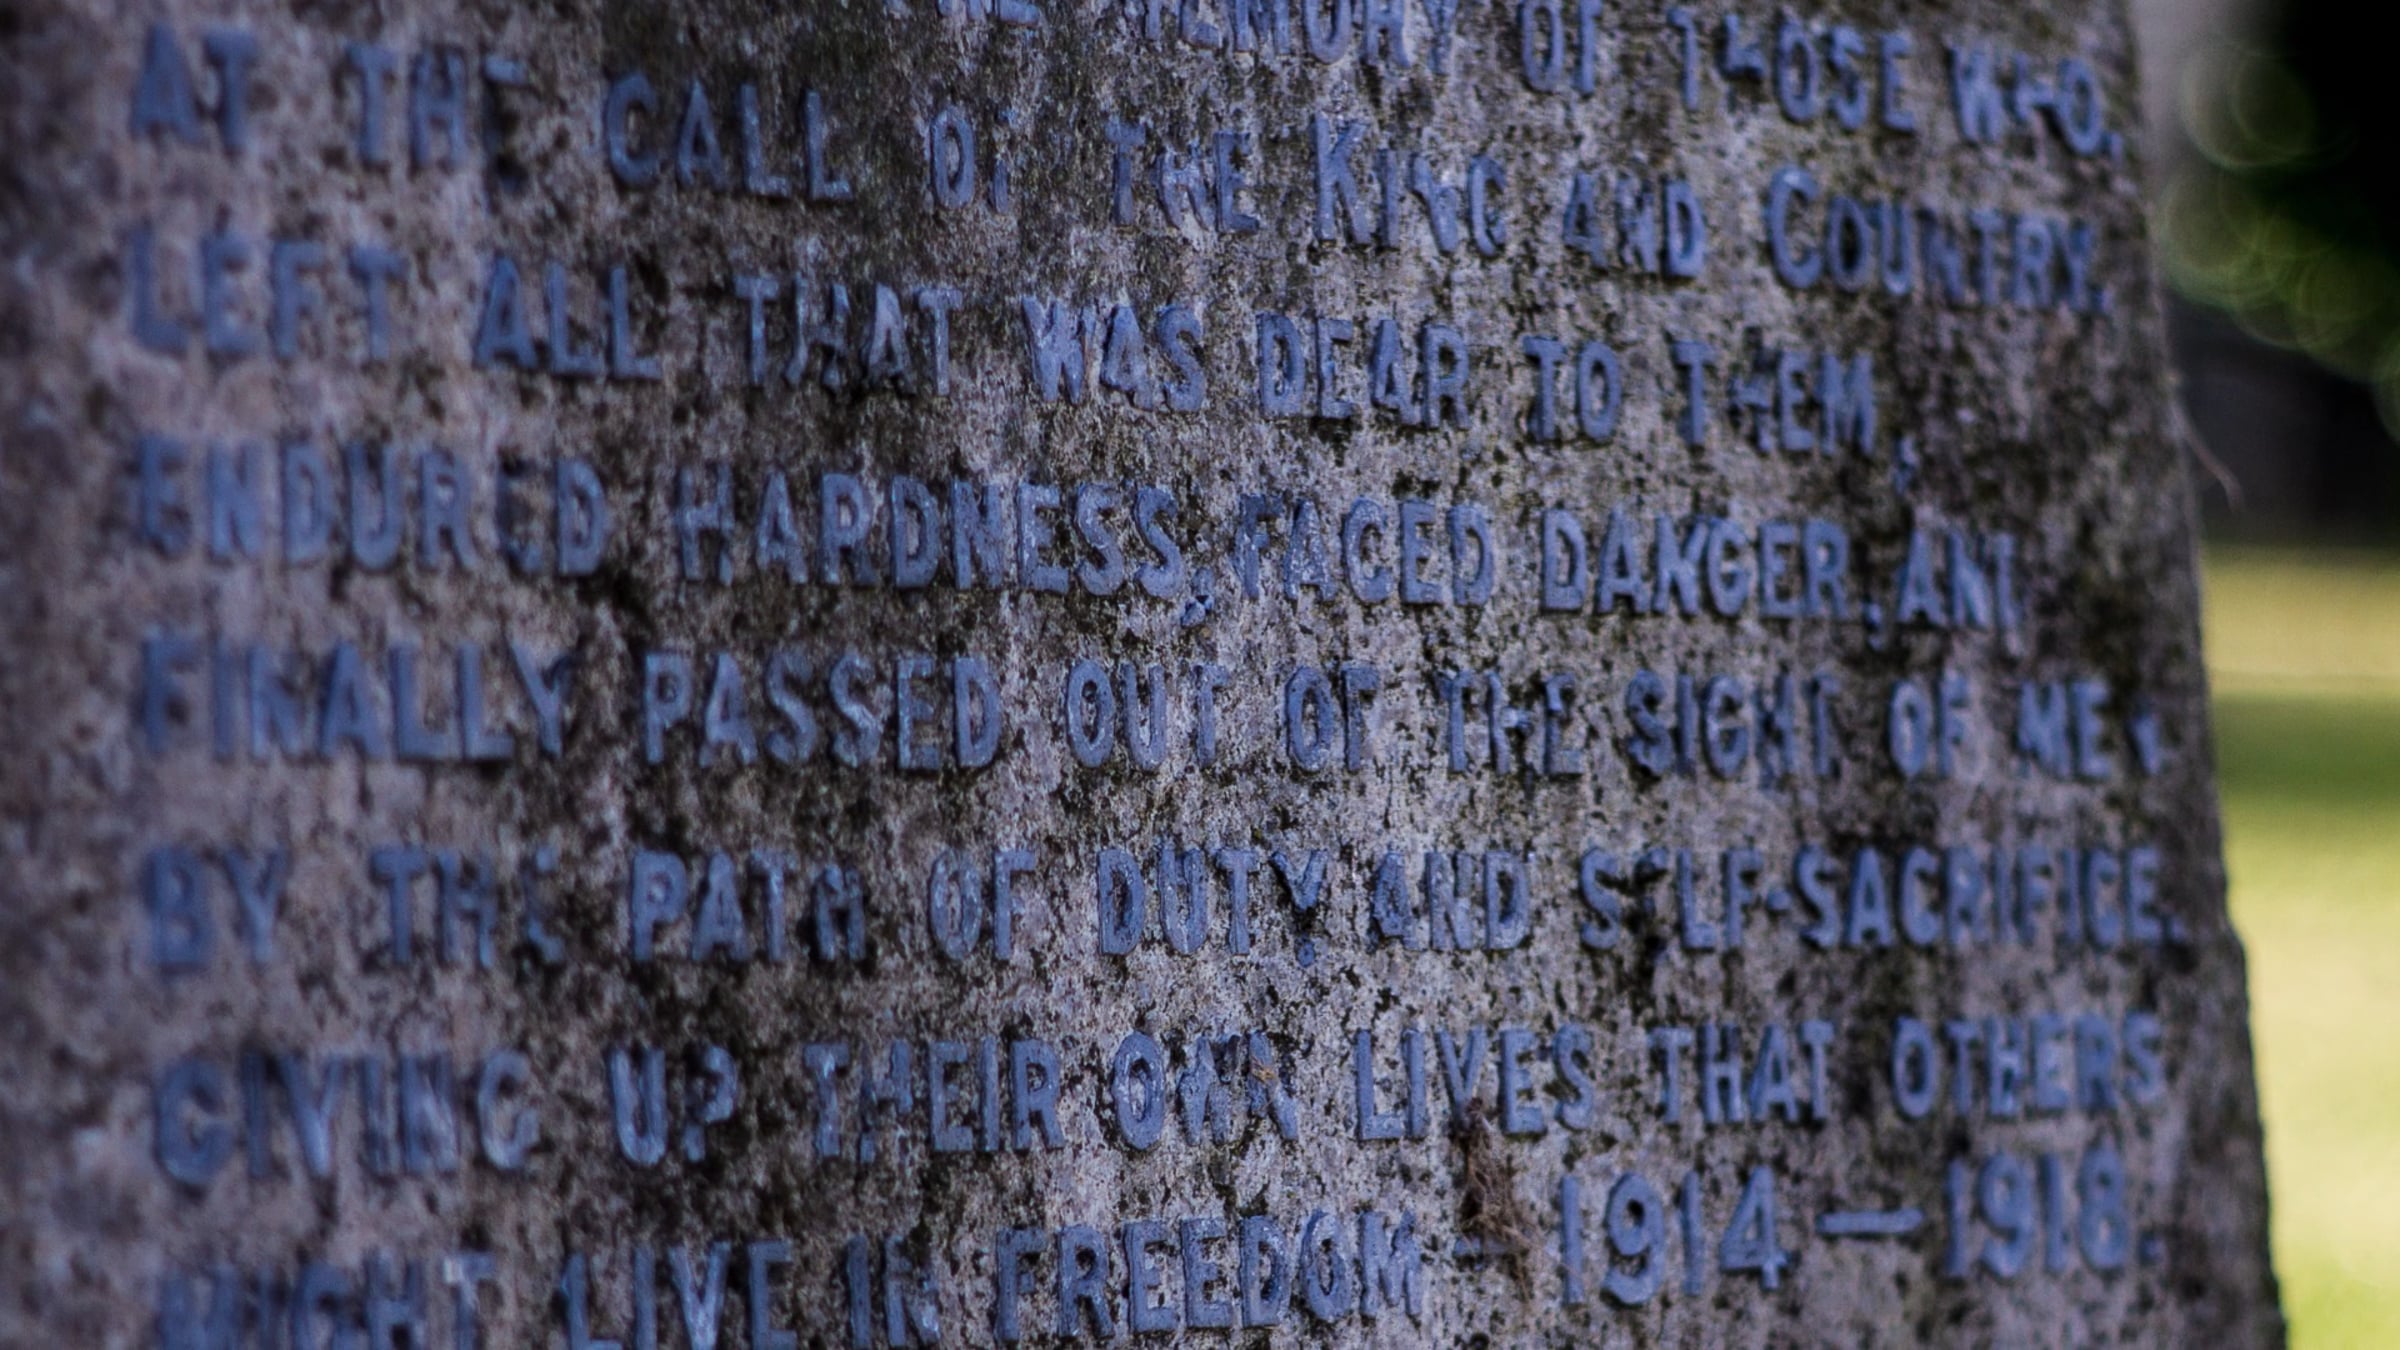 THE MEMORY OF THOSE WHO,
AT THE CALL OF THE KING AND COUNTRY,
LEFT ALL THAT WAS DEAR TO THEM,
ENDURED HARDNESS, FACED DANGER, AND
FINALLY PASSED OUT OF THE SIGHT OF MEN
BY THE PATH OF DUTY AND SELF-SACRIFICE,
GIVING UP THEIR OWN LIVES THAT OTHERS
MIGHT LIVE IN FREEDOM – 1914 — 1918.